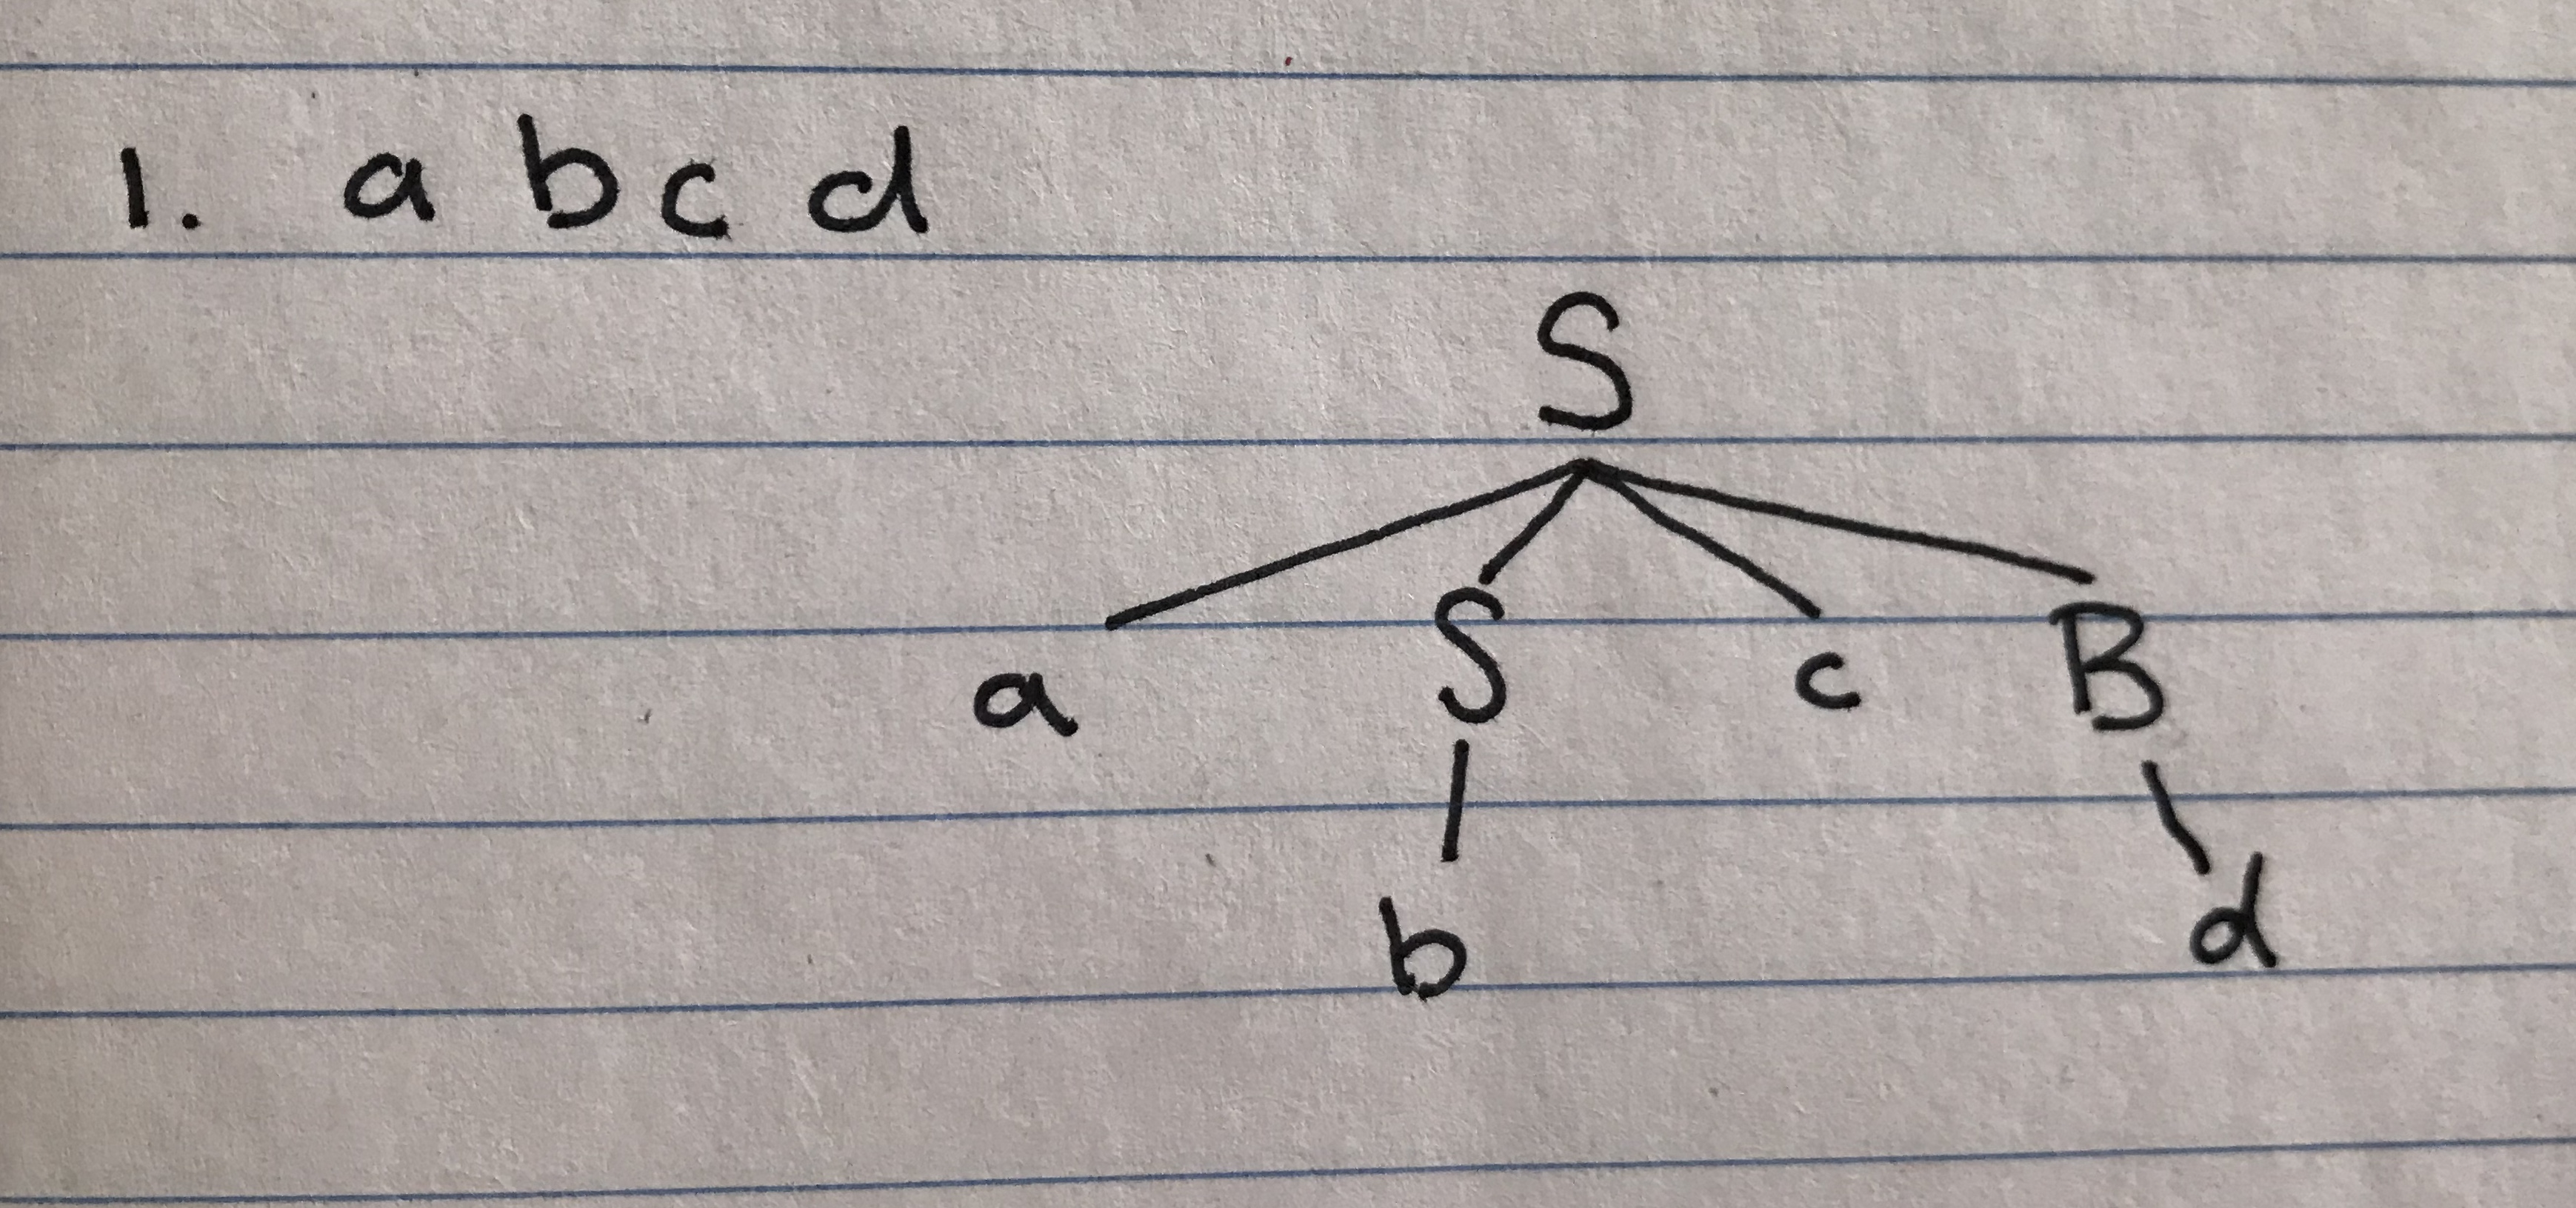 1. a b c d
S
a S c B
b d